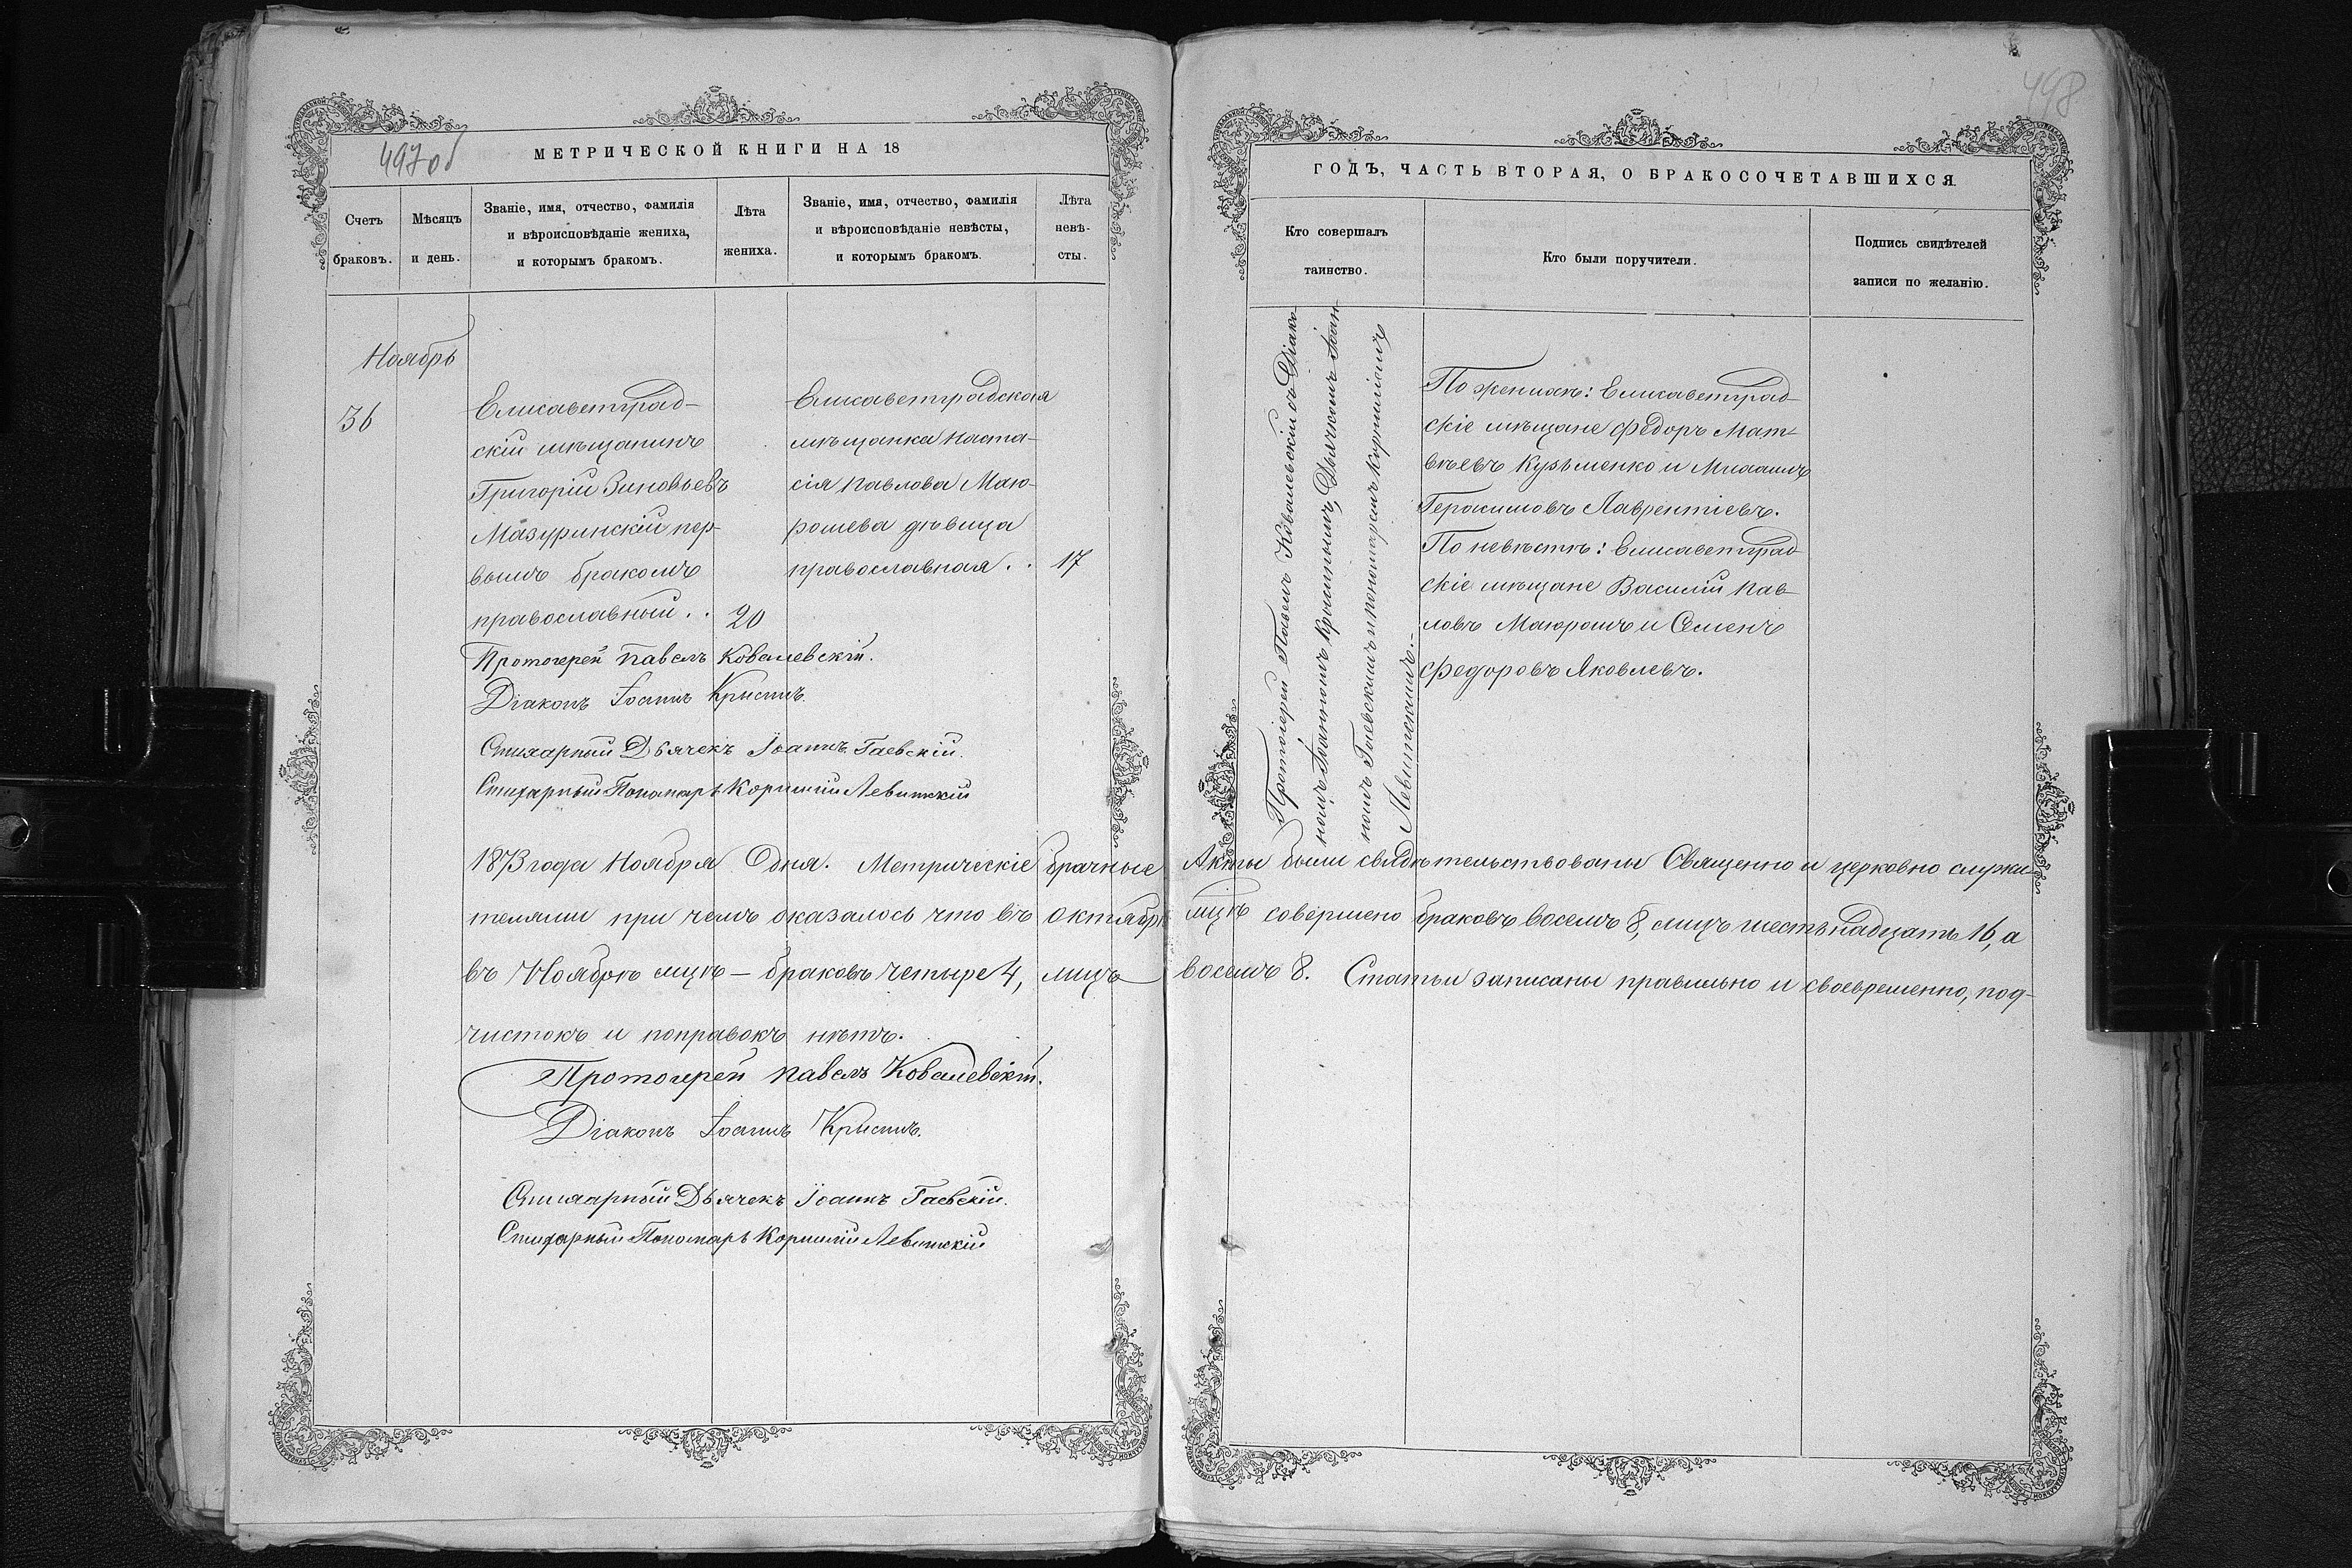 497 об
МЕТРИЧЕСКОЙ КНИГИ НА 18
Счетъ браковъ.
Мѣсяцъ и день.
Званіе, имя, отчество, фамилія
и вѣроисповѣданіе жениха,
и которымъ бракомъ.
Лѣта
жениха.
Званіе, имя, отчество, фамилія
и вѣроисповѣданіе невѣсты,
и которымъ бракомъ.
Лѣта
невѣ-
сты.
Ноябрь
36
Елисаветград-
скій мѣщанинъ
Григорій Зиновьевъ
Мазуринскій пер-
вымъ бракомъ
православный . . 20
Елисаветградская
мѣщанка Наста-
сія Павлова Маю-
рошева дѣвица
православная . . 17
Протоіерей Павелъ Ковалевскій.
Діаконъ Іоаннъ Крыснъ.
Стихарный Дьячекъ Іоаннъ Гаевскій.
Стихарный Пономарь Корнилій Левитскій
498
ГОДЪ, ЧАСТЬ ВТОРАЯ, О БРАКОСОЧЕТАВШИХСЯ.
Кто совершалъ
таинство.
Кто были поручители.
Подпись свидѣтелей
записи по желанію.
Протоіерей Павелъ Ковалевскій съ Діако-
номъ Іоанномъ Дьячкомъ Іоан-
номъ Гаевскимъ и пономаремъ Корниліемъ
Левитскимъ.
По женихѣ: Елисаветград-
скіе мѣщане Федоръ Мат-
вѣевъ Кузьменко и Михаилъ
Герасимовъ Лаврентіевъ.
По невѣстѣ: Елисаветград-
скіе мѣщане Василій Пав-
ловъ Маюрошъ и Семенъ
Федоровъ Яковлевъ.
1873 года Ноября дня. Метрическіе брачные Акты были свидѣтельствованы Священно и церковно служи-
телями при чемъ оказалось что въ Октябрѣ мцѣ совершено браковъ восемь 8, лицъ шестьнадцать 16, а
въ Ноябрѣ мцѣ — браковъ четыре 4, лицъ восемь 8. Статьи записаны правильно и своевременно, под-
чистокъ и поправокъ нѣтъ.
Протоіерей Павелъ Ковалевскій.
Діаконъ Іоаннъ Крыснъ.
Стихарный Дьячекъ Іоаннъ Гаевскій.
Стихарный Пономарь Корнилій Левитскій